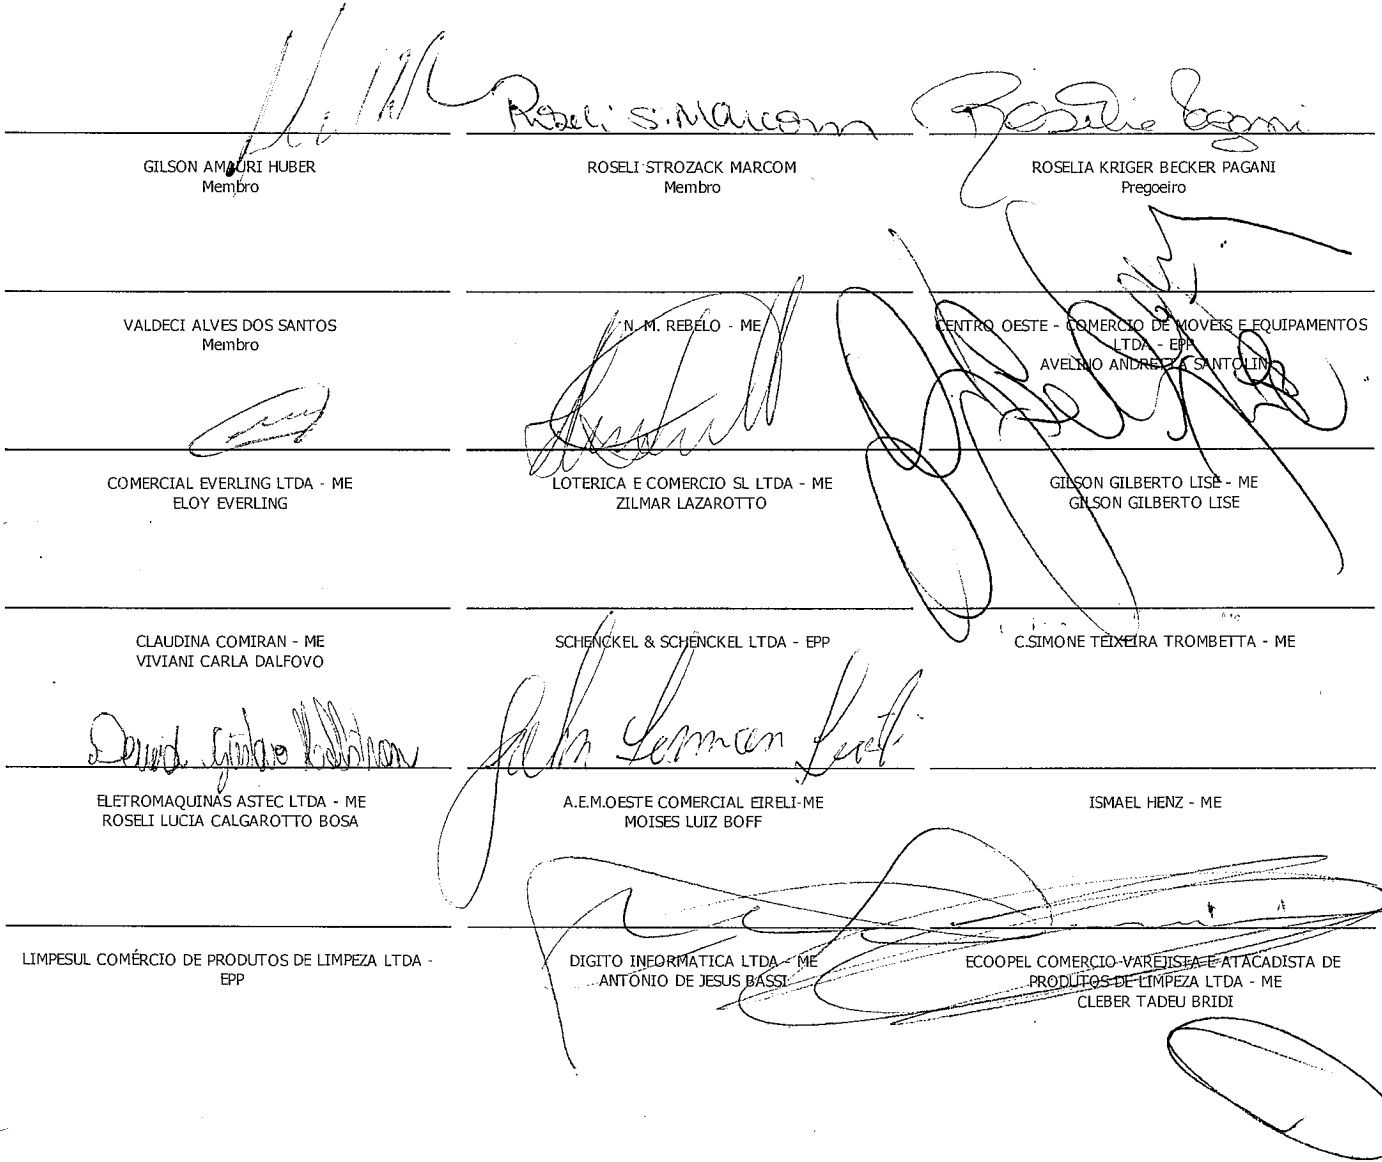 Roseli S. Marcom
Roselia Pagani
GILSON AMAURI HUBER
Membro
ROSELI STROZACK MARCOM
Membro
ROSELIA KRIGER BECKER PAGANI
Pregoeiro
VALDECI ALVES DOS SANTOS
Membro
N. M. REBELO - ME
CENTRO OESTE - COMERCIO DE MOVEIS E EQUIPAMENTOS
LTDA - EPP
AVELINO ANDRETTA SANTOLIN
COMERCIAL EVERLING LTDA - ME
ELOY EVERLING
LOTERICA E COMERCIO SL LTDA - ME
ZILMAR LAZAROTTO
GILSON GILBERTO LISE - ME
GILSON GILBERTO LISE
CLAUDINA COMIRAN - ME
VIVIANI CARLA DALFOVO
SCHENCKEL & SCHENCKEL LTDA - EPP
C.SIMONE TEIXEIRA TROMBETTA - ME
ELETROMAQUINAS ASTEC LTDA - ME
ROSELI LUCIA CALGAROTTO BOSA
A.E.M.OESTE COMERCIAL EIRELI-ME
MOISES LUIZ BOFF
ISMAEL HENZ - ME
LIMPESUL COMÉRCIO DE PRODUTOS DE LIMPEZA LTDA -
EPP
DIGITO INFORMATICA LTDA - ME
ANTONIO DE JESUS BASSI
ECOOPEL COMERCIO VAREJISTA E ATACADISTA DE
PRODUTOS DE LIMPEZA LTDA - ME
CLEBER TADEU BRIDI